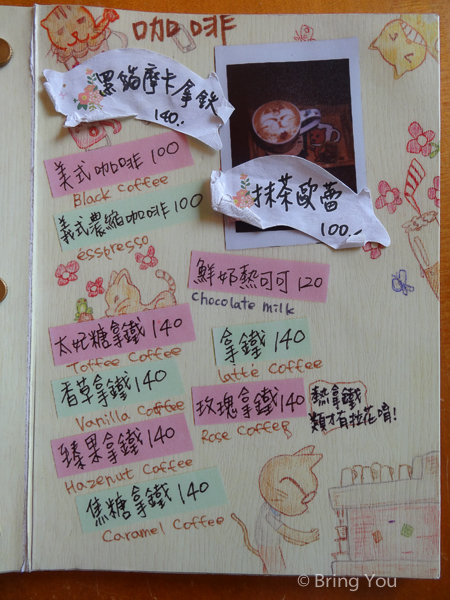 咖啡
黑貓摩卡拿鐵
140.
抹茶歐蕾
100.-
美式咖啡 100
Black Coffee
義式濃縮咖啡 100
esspresso
鮮奶熱可可 120
Chocolate milk
太妃糖拿鐵 140
Toffee Coffee
拿鐵 140
Latte Coffee
香草拿鐵 140
Vanilla Coffee
玫瑰拿鐵 140
Rose Coffee
熱拿鐵
類才有拉花唷!
榛果拿鐵 140
Hazenut Coffee
焦糖拿鐵 140
Caramel Coffee
© Bring You